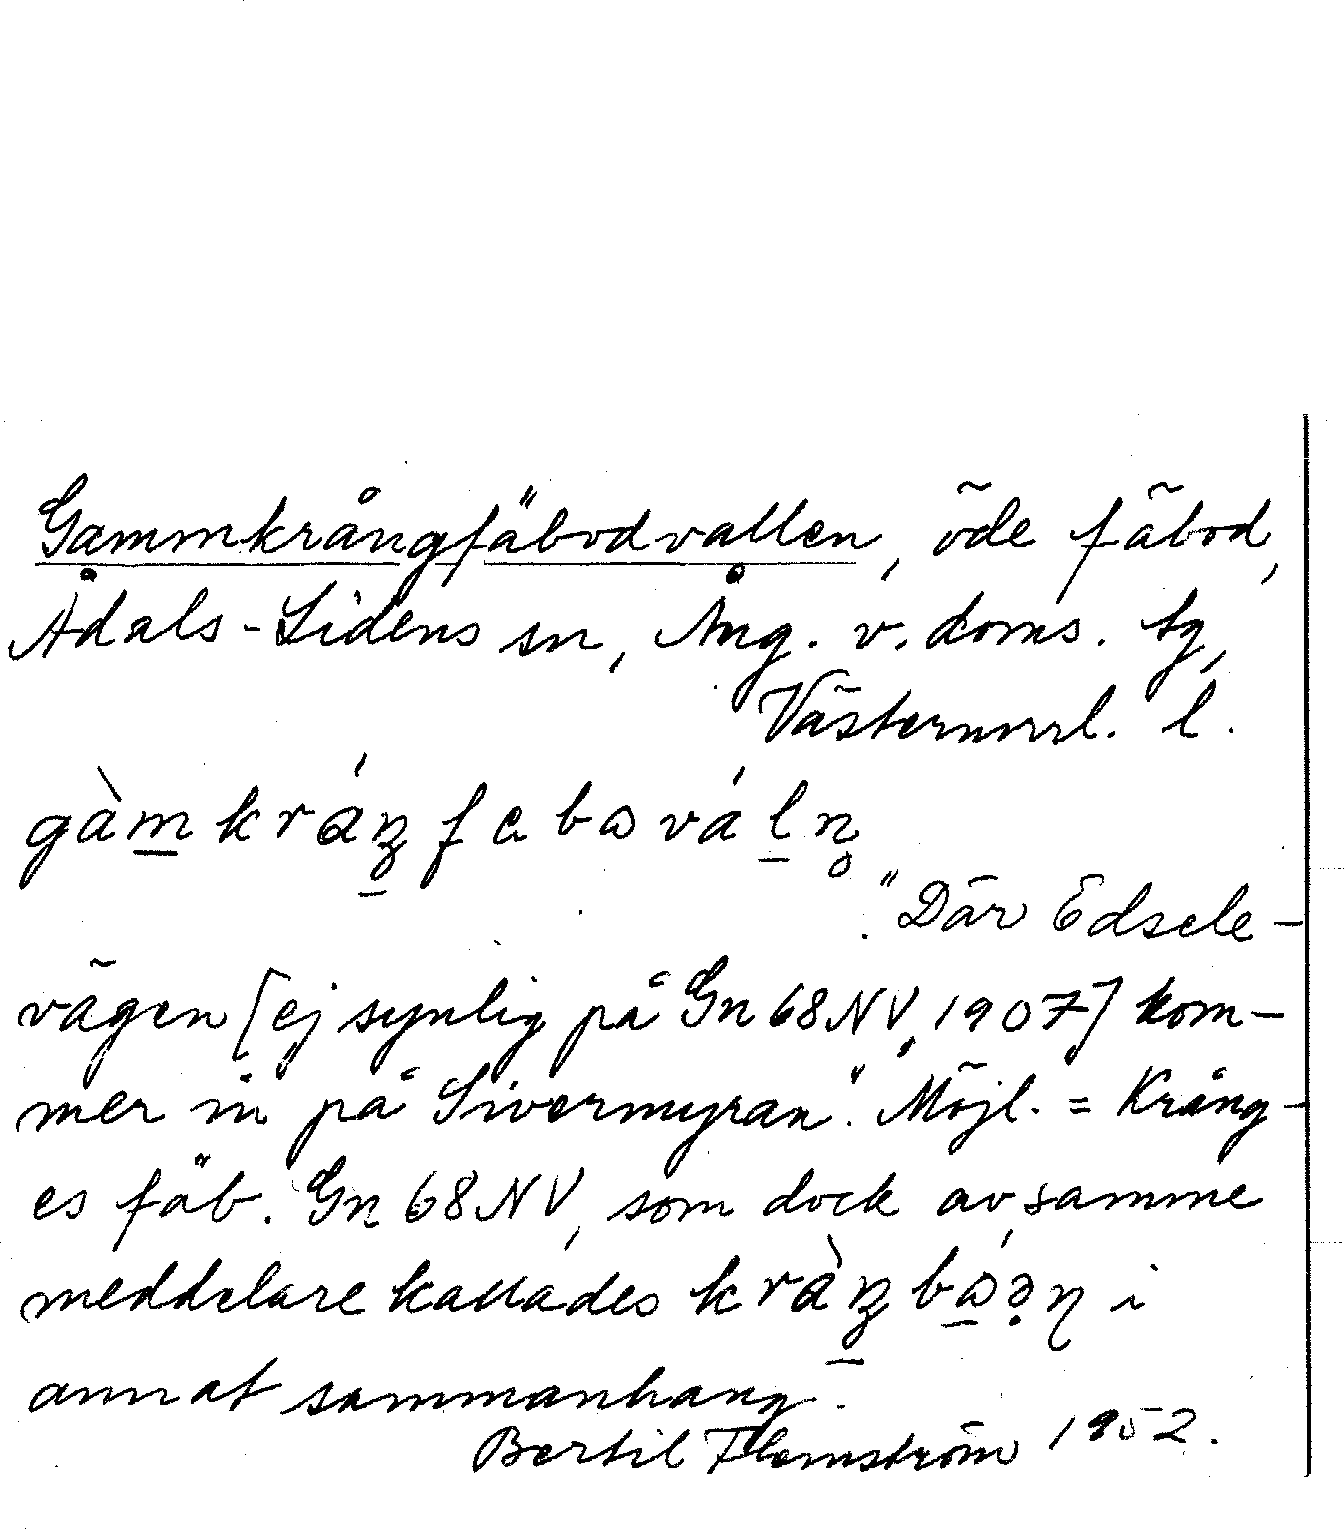 Gammkrångfäbodvallen, öde fäbod,
Ådals-Lidens sn, Ång. v. doms. tg,
Västernorrl. l.
"Där Edsele-
vägen [ej synlig på Gn 68 NV, 1907] kom-
mer in på Sivermyran". Möjl. = Krång-
es fäb. Gn 68 NV, som dock av samme
meddelare kallades i
annat sammanhang.
Bertil Flemström 1952.